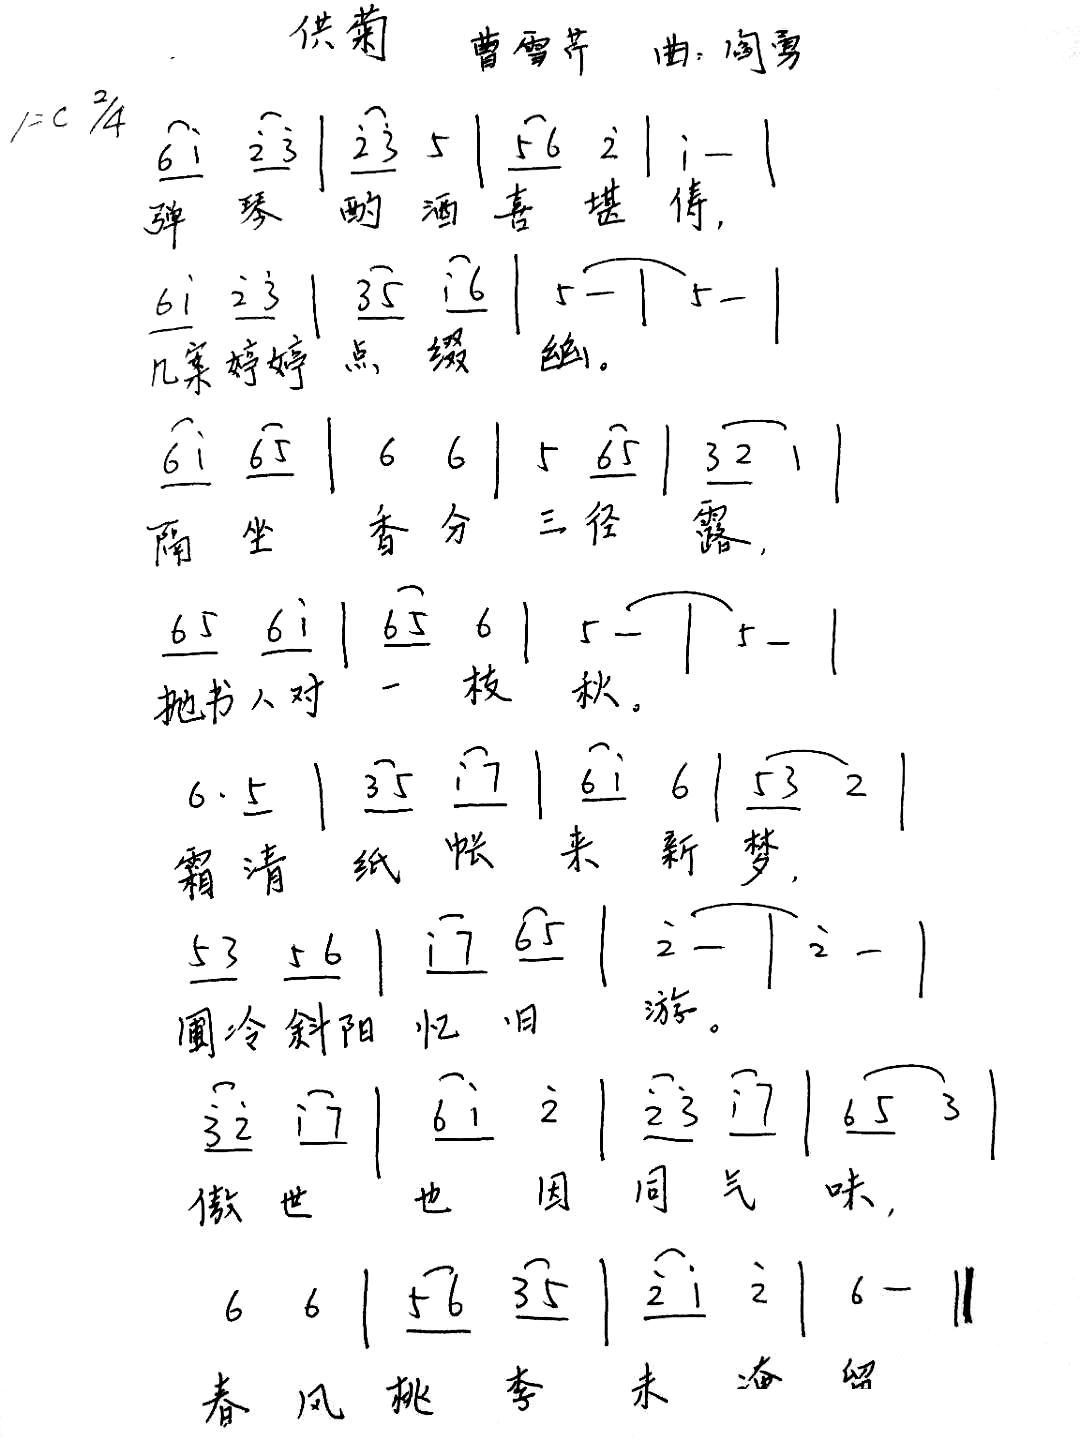 供菊 曹雪芹 曲:阎勇
1=C 2/4
6i̇ 2̇3̇ | 2̇3̇ 5 | 56 2̇ | i̇ — |
弹琴酌酒喜堪俦,
6i̇ 2̇3̇ | 35 i̇6 | 5 — | 5 — |
几案婷婷点缀幽。
6i̇ 65 | 6 6 | 5 65 | 32 1 |
隔坐香分三径露,
65 6i̇ | 65 6 | 5 — | 5 — |
抛书人对一枝秋。
6· 5 | 35 i̇7 | 6i̇ 6 | 53 2 |
霜清纸帐来新梦,
53 56 | i̇7 65 | 2̇ — | 2̇ — |
圃冷斜阳忆旧游。
3̇2̇ i̇7 | 6i̇ 2̇ | 2̇3̇ i̇7 | 65 3 |
傲世也因同气味,
6 6 | 56 35 | 2̇i̇ 2̇ | 6 — ‖
春风桃李未淹留